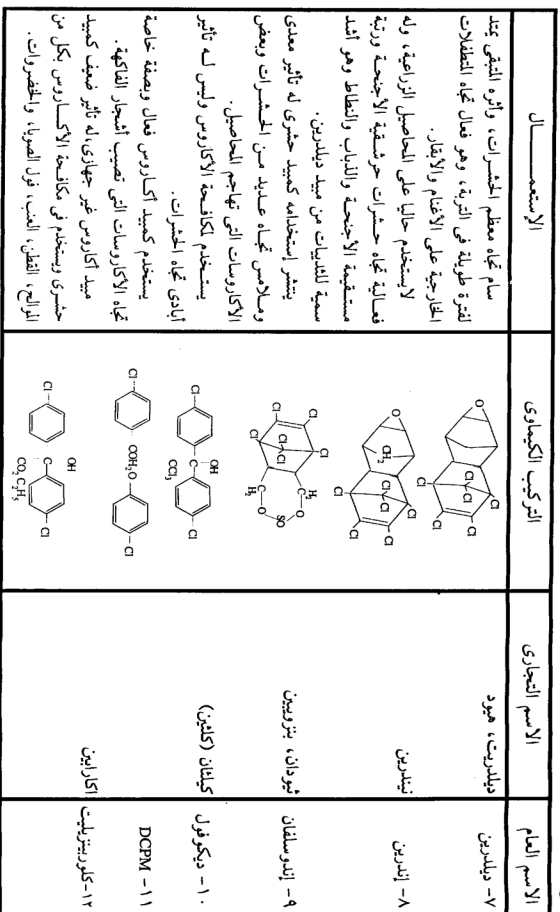 الاسم العام
الاسم التجارى
التركيب الكيماوى
الإستعمـــــال
٧- ديلدرين
ديلدريت، هيود
O
Cl
Cl
Cl
Cl
Cl
Cl
سام تجاه معظم الحشرات، واثره المتبقى يمتد
لفترة طويلة فى التربة، وهو فعال تجاه المتطفلات
الخارجية على الأغنام والأبقار.
٨- إندرين
نيندرين
O
CH2
Cl
Cl
Cl
Cl
Cl
Cl
لايستخدم حاليا على المحاصيل الزراعية، وله
فعالية تجاه حشرات حرشفية الأجنحة ورتبة
مستقيمة الأجنحة والذباب والنطاط وهو أشد
سمية للثدييات من مبيد ديلدرين.
٩- إندوسلفان
ثيودان، بنزويبين
Cl
Cl
Cl
Cl
Cl
Cl
H2
C-O
SO
C-O
H2
ينتشر إستخدامه كمبيد حشرى له تأثير معدى
وملامس تجاه عديد من الحشرات وبعض
الأكاروسات التى تهاجم المحاصيل.
١٠- ديكوفول
كيلثان (كلثين)
OH
Cl C Cl
CCl3
يستخدم لمكافحة الأكاروس وليس له تأثير
أبادى تجاه الحشرات.
١١- DCPM
Cl COH2O Cl
يستخدم كمبيد أكاروس فعال وبصفة خاصة
تجاه الأكاروسات التى تصيب أشجار الفاكهة.
١٢- كلوربينزيليت
اكارابين
OH
Cl C Cl
CO2 C2H5
مبيد أكاروس غير جهازى، له تاثير ضعيف كمبيد
حشرى ويستخدم فى مكافحة الأكاروس بكل من
الموالح، القطن، العنب، فول الصويا، والخضروات.